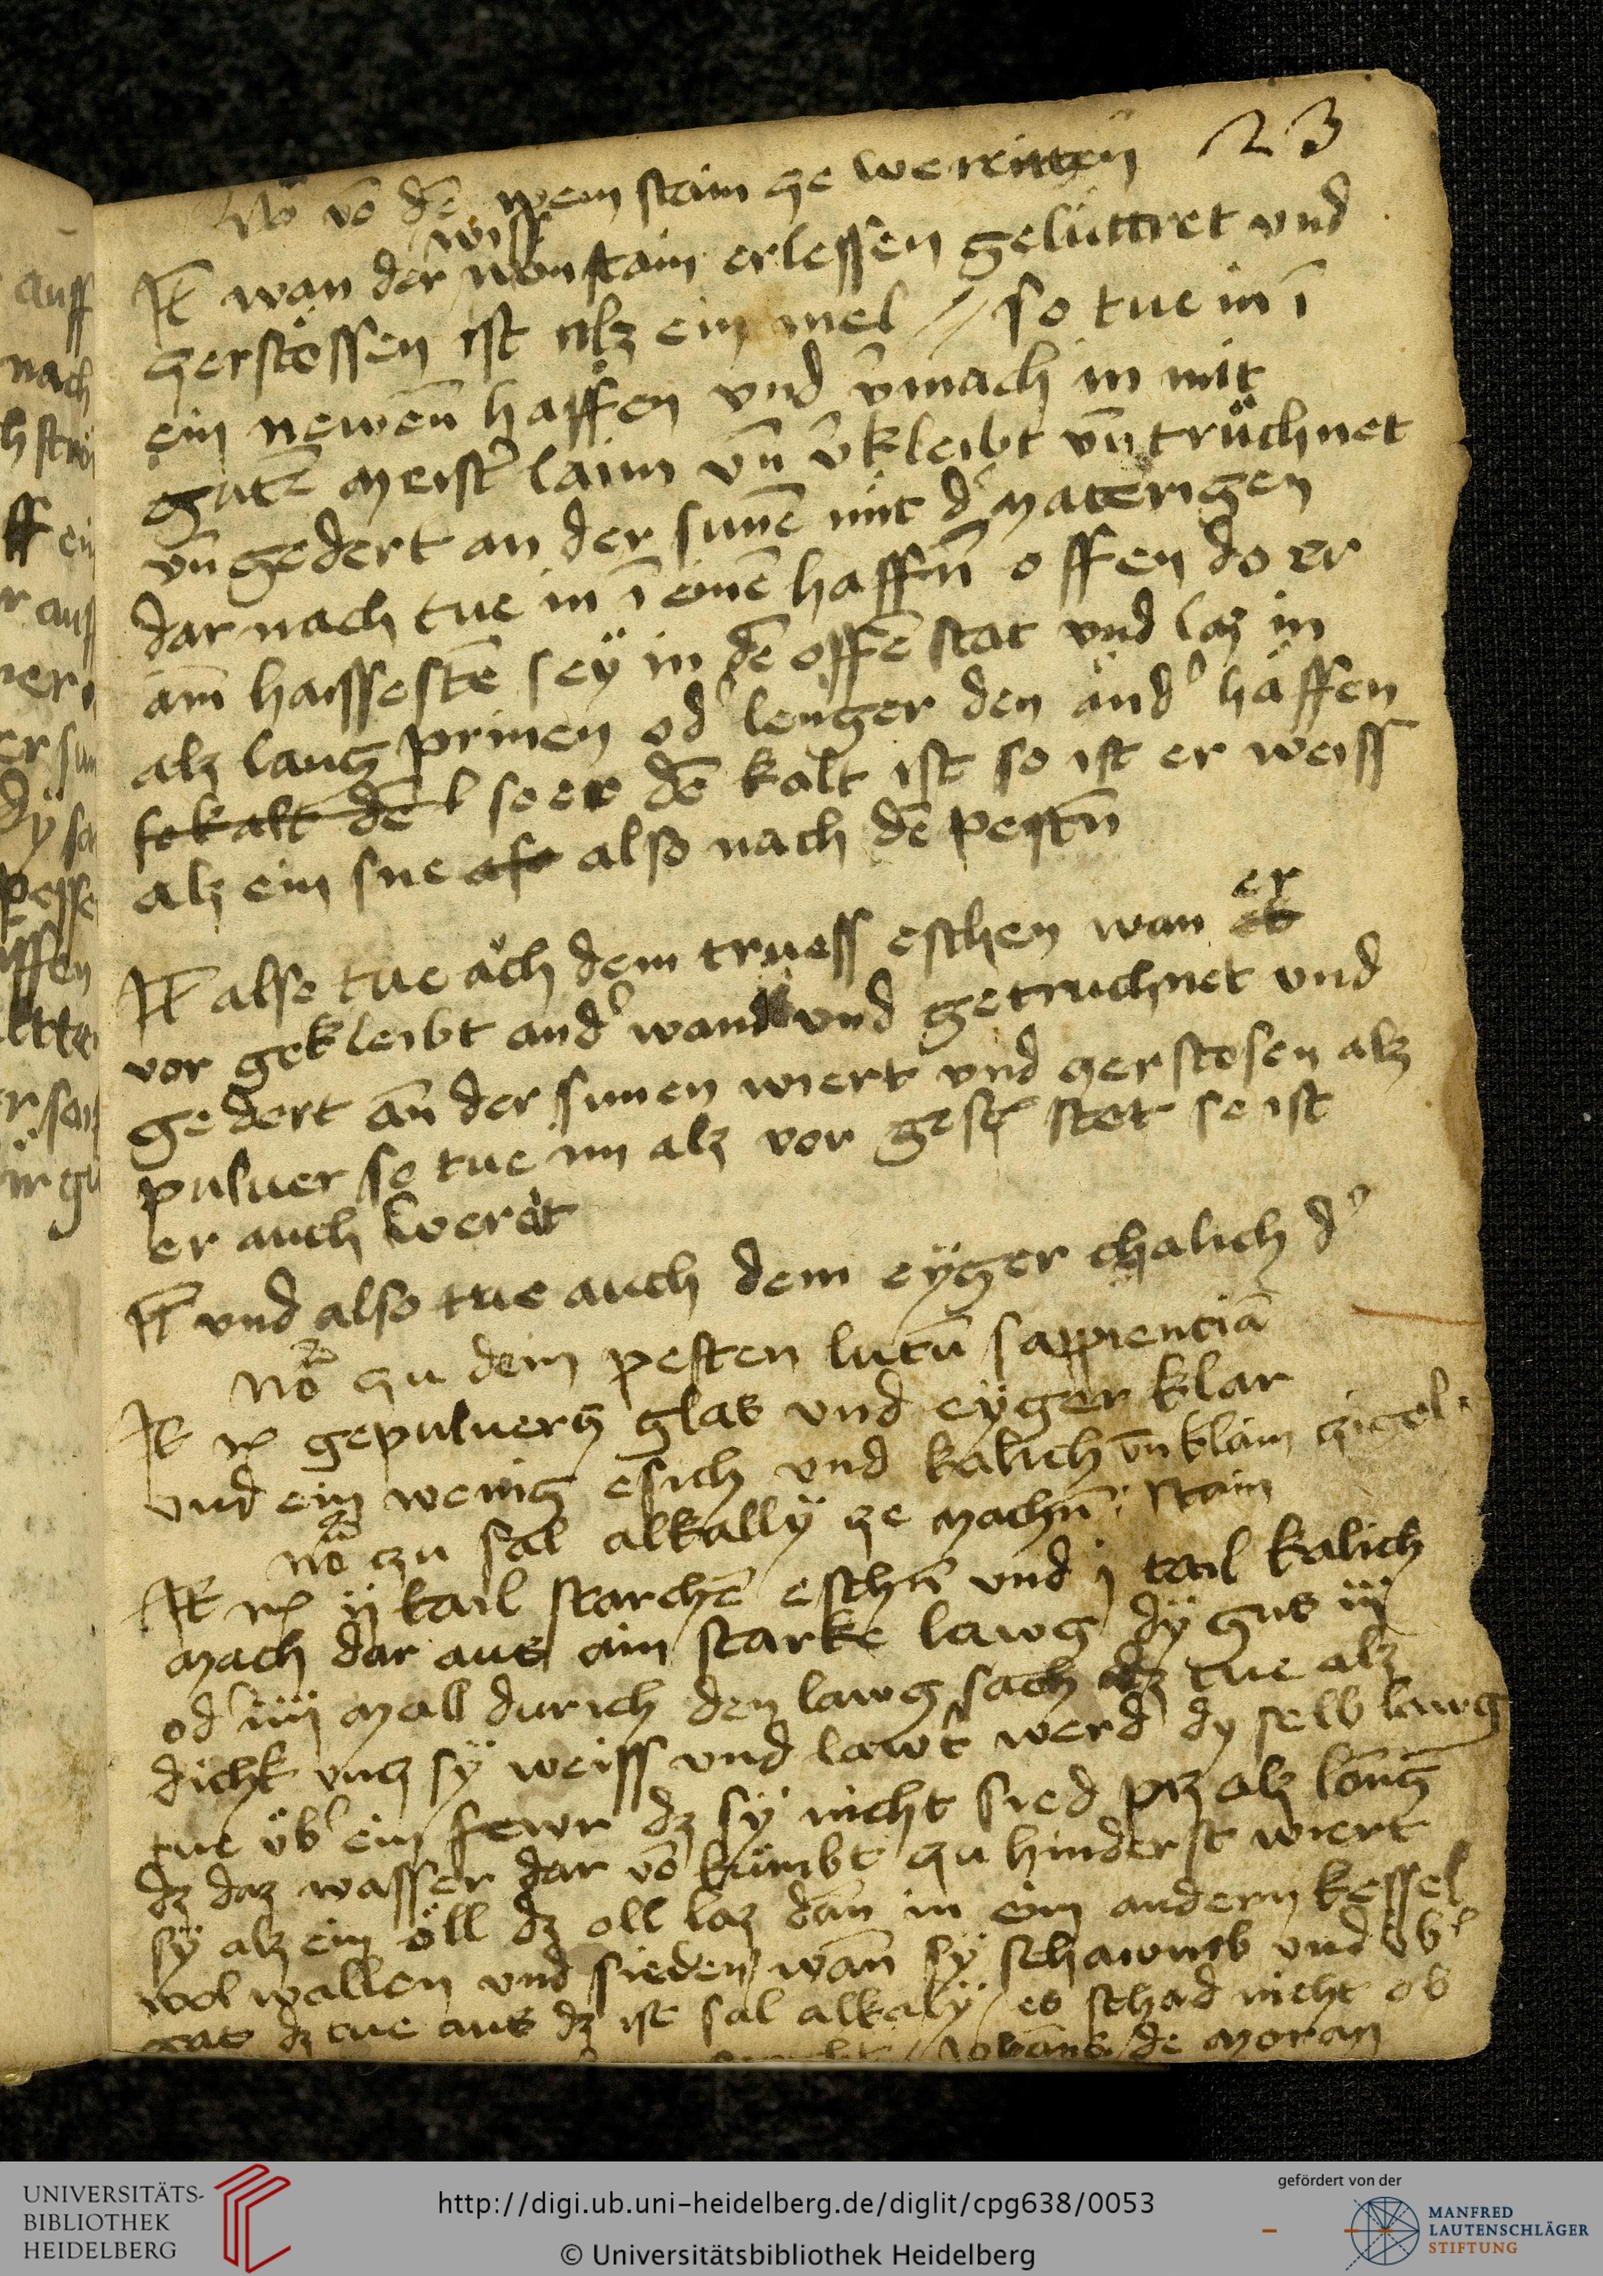 23
Nō vō dē wein stain ze wereitten
Jt̄ wan der wiss weinstain erlessen gelüttret vnd
zerstössen ist alz ein mel // so tue in ī
ein newen̄ haffen vnd v̄mach in mit
gutē meist' laim vn̄ v̄kleibt vn̄ trüchnet
vn̄ gedert an der sunnē mit d' materigen
dar nach tue in ī einē haffn̄ offen do er
am haissestē seÿ in dē offē stat vnd laz in
alz lang prinen od' lenger den and' häffen
so kalt dē l so er dē kalt ist so ist er weiss
alz ein sne also also nach dē pestn̄
Jt̄ also tue äch dem truess eschen wan er
vor gekleibt and' wand vnd getruchnet vnd
gedert an̄ der sunnen wiert vnd zerstosen alz
puluer so tue im alz vor gesc' stet so ist
er auch werait
Jt̄ vnd also tue auch dem eÿger chalich d'
Nō zu dem pesten lutū sappiencia
Jt R' gepuluerz glas vnd eÿger klar
vnd ein wenig esich vnd kalich vn̄ klain zigel
stain
Nō zu sal alkallÿ ze machn̄
Jt R' ij tail starchē eschn̄ vnd j tail kalich
mach dar aus ain starke lawg dÿ gus iij
od' iiij mall durich den lawg sach dz tue alz
dichk vnz sÿ weiss vnd lawt' werd dy selb lawg
tue üb' ein fewr dz sÿ nicht sied alz lang
dz daz wasser dar vō kümbt zu hinderst wiert
sÿ alz ein öll dz oll laz dan̄ in eim andern kessel
wol wallen vnd sieden wan̄ sÿ schawmb vnd vb'
gat dz tue aus dz ist sal alkalÿ / es schad nicht ob
de moran
auff
nach
UNIVERSITÄTS-
BIBLIOTHEK
HEIDELBERG
http://digi.ub.uni-heidelberg.de/diglit/cpg638/0053
© Universitätsbibliothek Heidelberg
gefördert von der
MANFRED
LAUTENSCHLÄGER
STIFTUNG